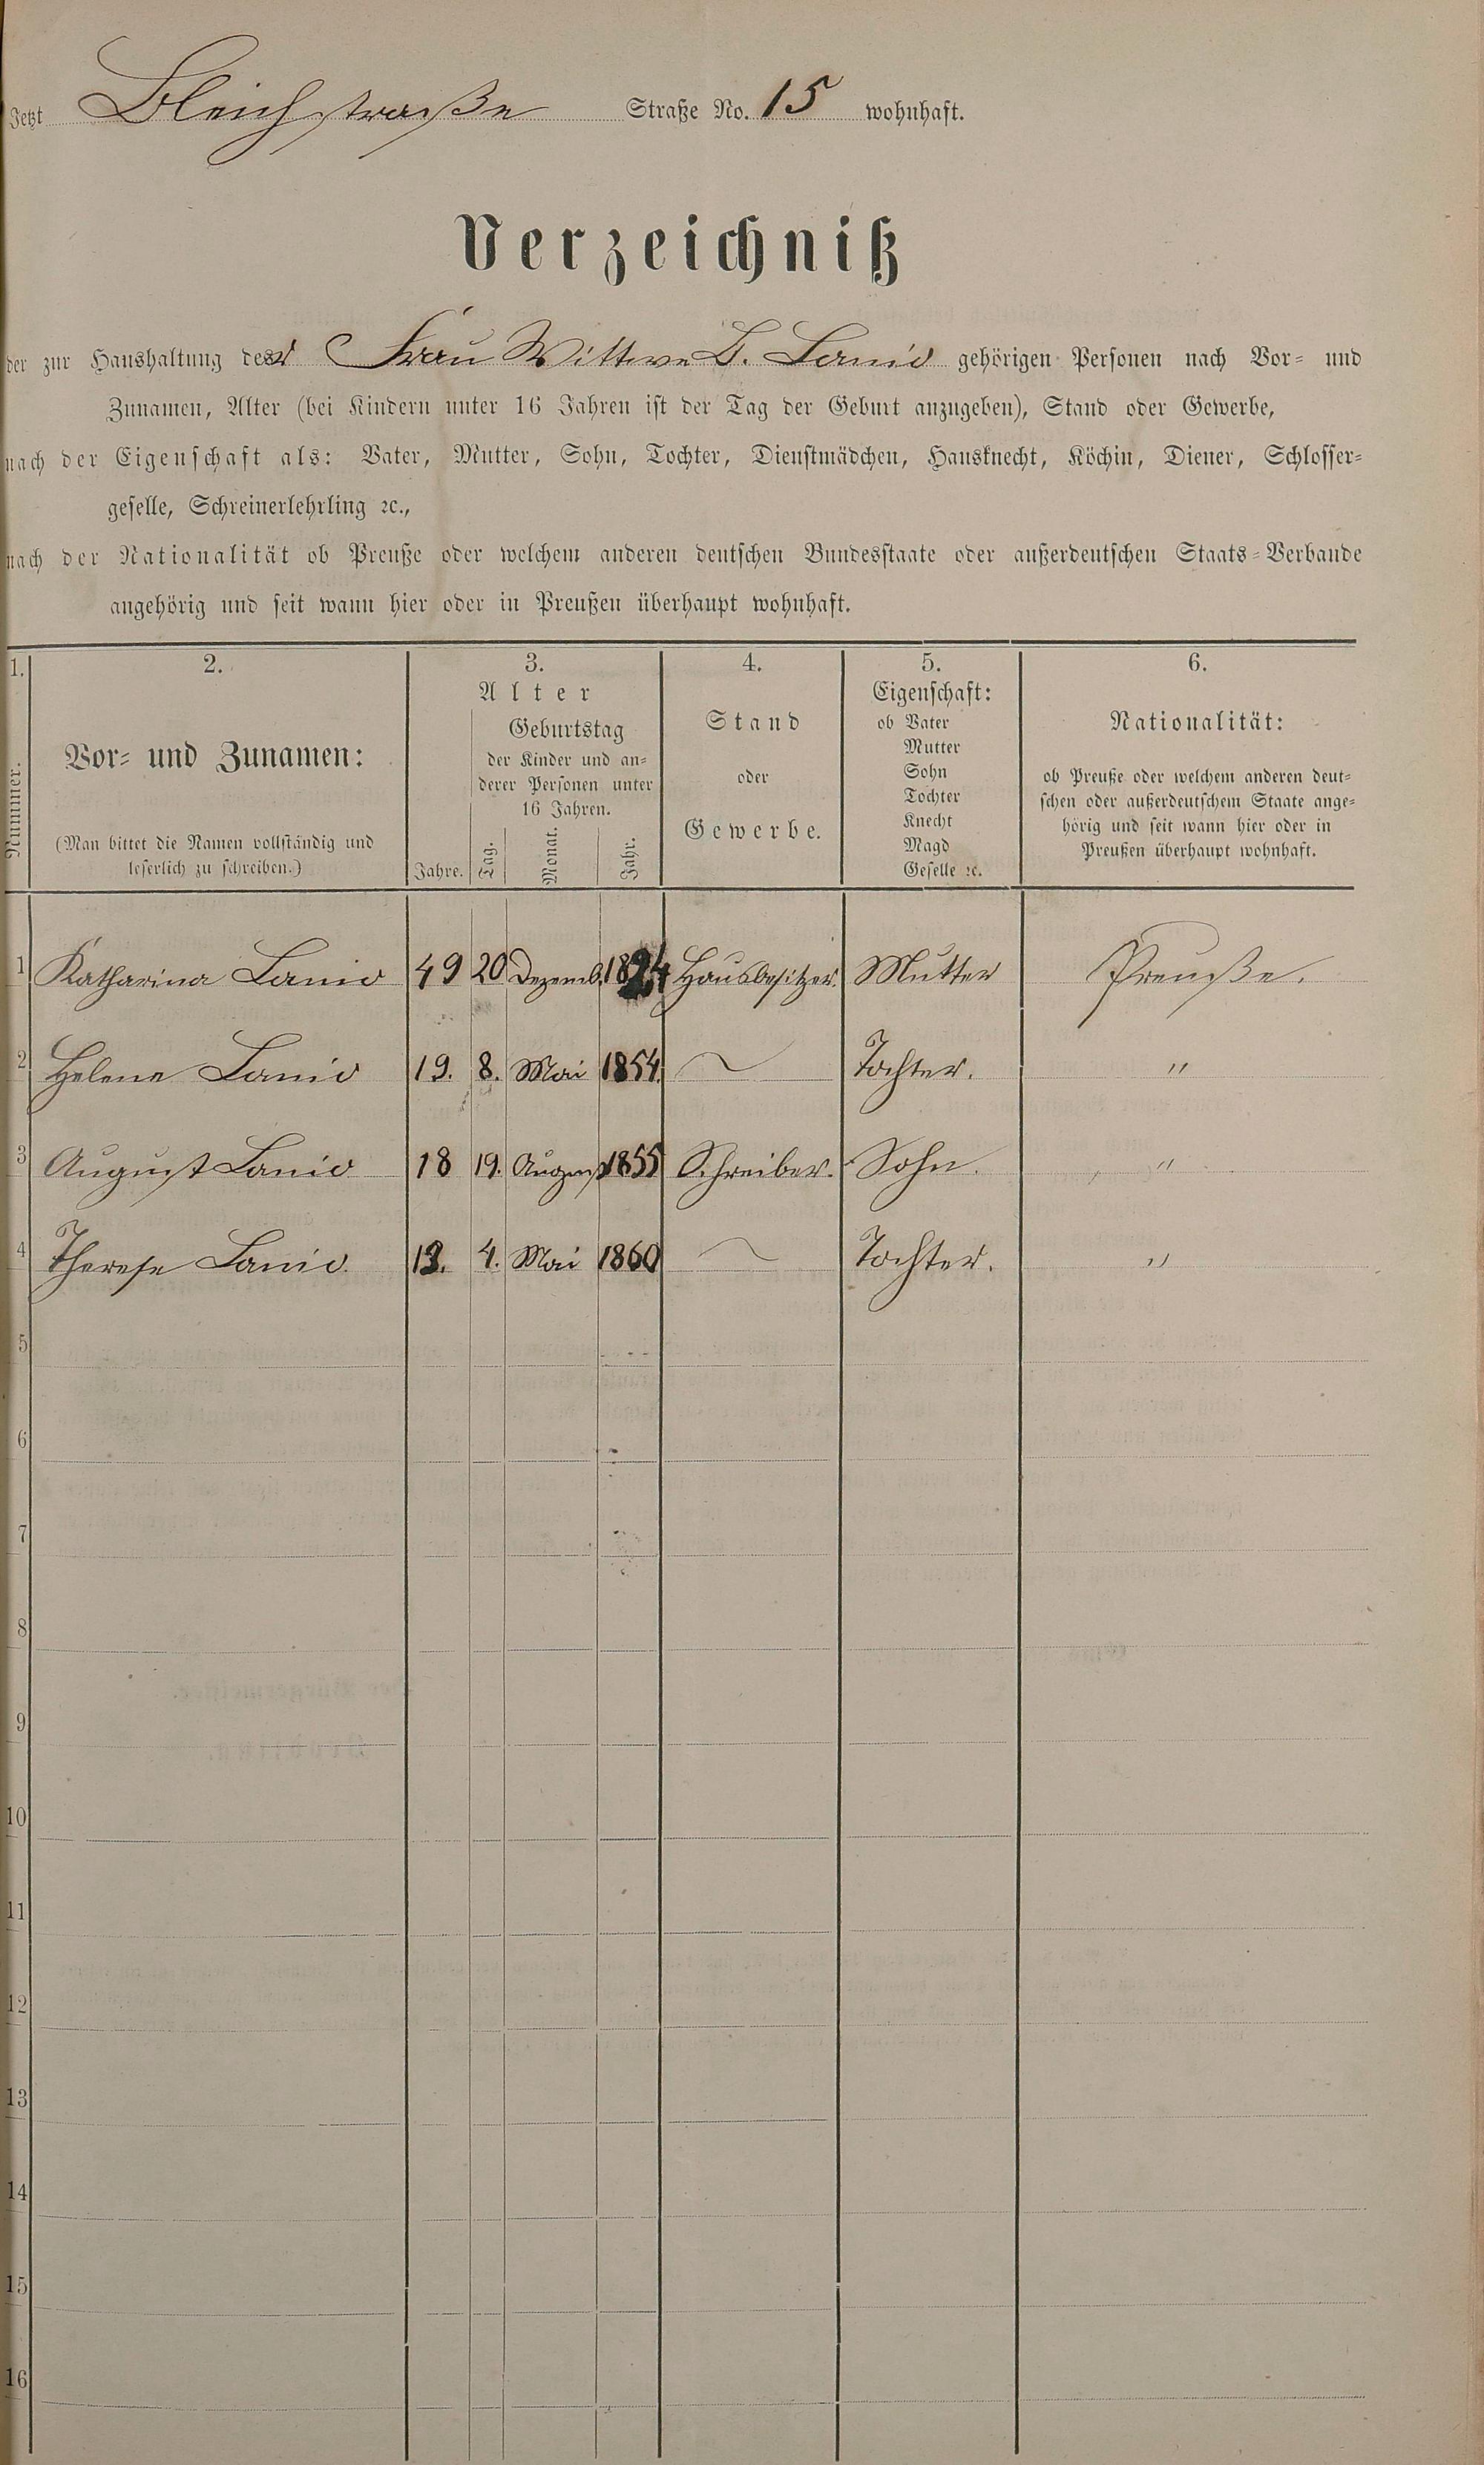 Jetzt Bleichstraße Straße No. 15 wohnhaft.
Verzeichniß
der zur Haushaltung der Frau Wittwe L. Lanio gehörigen Personen nach Vor- und
Zunamen, Alter (bei Kindern unter 16 Jahren ist der Tag der Geburt anzugeben), Stand oder Gewerbe,
nach der Eigenschaft als: Vater, Mutter, Sohn, Tochter, Dienstmädchen, Hausknecht, Köchin, Diener, Schlosser-
geselle, Schreinerlehrling ꝛc.,
nach der Nationalität ob Preuße oder welchem anderen deutschen Bundesstaate oder außerdeutschen Staats-Verbande
angehörig und seit wann hier oder in Preußen überhaupt wohnhaft.
1.
Nummer.
2.
Vor- und Zunamen:
(Man bittet die Namen vollständig und
leserlich zu schreiben.)
3.
Alter
Jahre.
Geburtstag
der Kinder und an-
derer Personen unter
16 Jahren.
Tag. Monat. Jahr.
4.
Stand
oder
Gewerbe.
5.
Eigenschaft:
ob Vater
Mutter
Sohn
Tochter
Knecht
Magd
Geselle ꝛc.
6.
Nationalität:
ob Preuße oder welchem anderen deut-
schen oder außerdeutschem Staate ange-
hörig und seit wann hier oder in
Preußen überhaupt wohnhaft.
1 Katharina Lanio 49 20 Dezemb. 1824 Hausbesitzer. Mutter Preuße.
2 Helene Lanio 19. 8. Mai 1854. Tochter. "
3 August Lanio 18 19. August 1855 Schreiber. Sohn. "
4 Therese Lanio. 13. 4. Mai 1860 Tochter. "
5
6
7
8
9
10
11
12
13
14
15
16